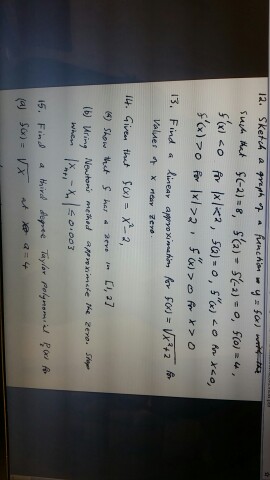 12. Sketch a graph of a function y = f(x)
such that f(-2)=8, f'(2) = f'(-2) = 0, f(0) = 4,
f'(x) < 0 for |x|<2, f(2)=0, f''(x) < 0 for x<0,
f'(x) > 0 for |x|>2, f''(x) > 0 for x > 0
13. Find a linear approximation for f(x) = √x²+2 for
values of x near zero.
14. Given that f(x) = x² - 2,
(a) Show that f has a zero in [1,2]
(b) Using Newtons method approximate the zero. Stop
when |xₙ₊₁ - xₙ| ≤ 0.003
15. Find a third degree Taylor Polynomial P₃(x) for
(a) f(x) = √x at a = 4